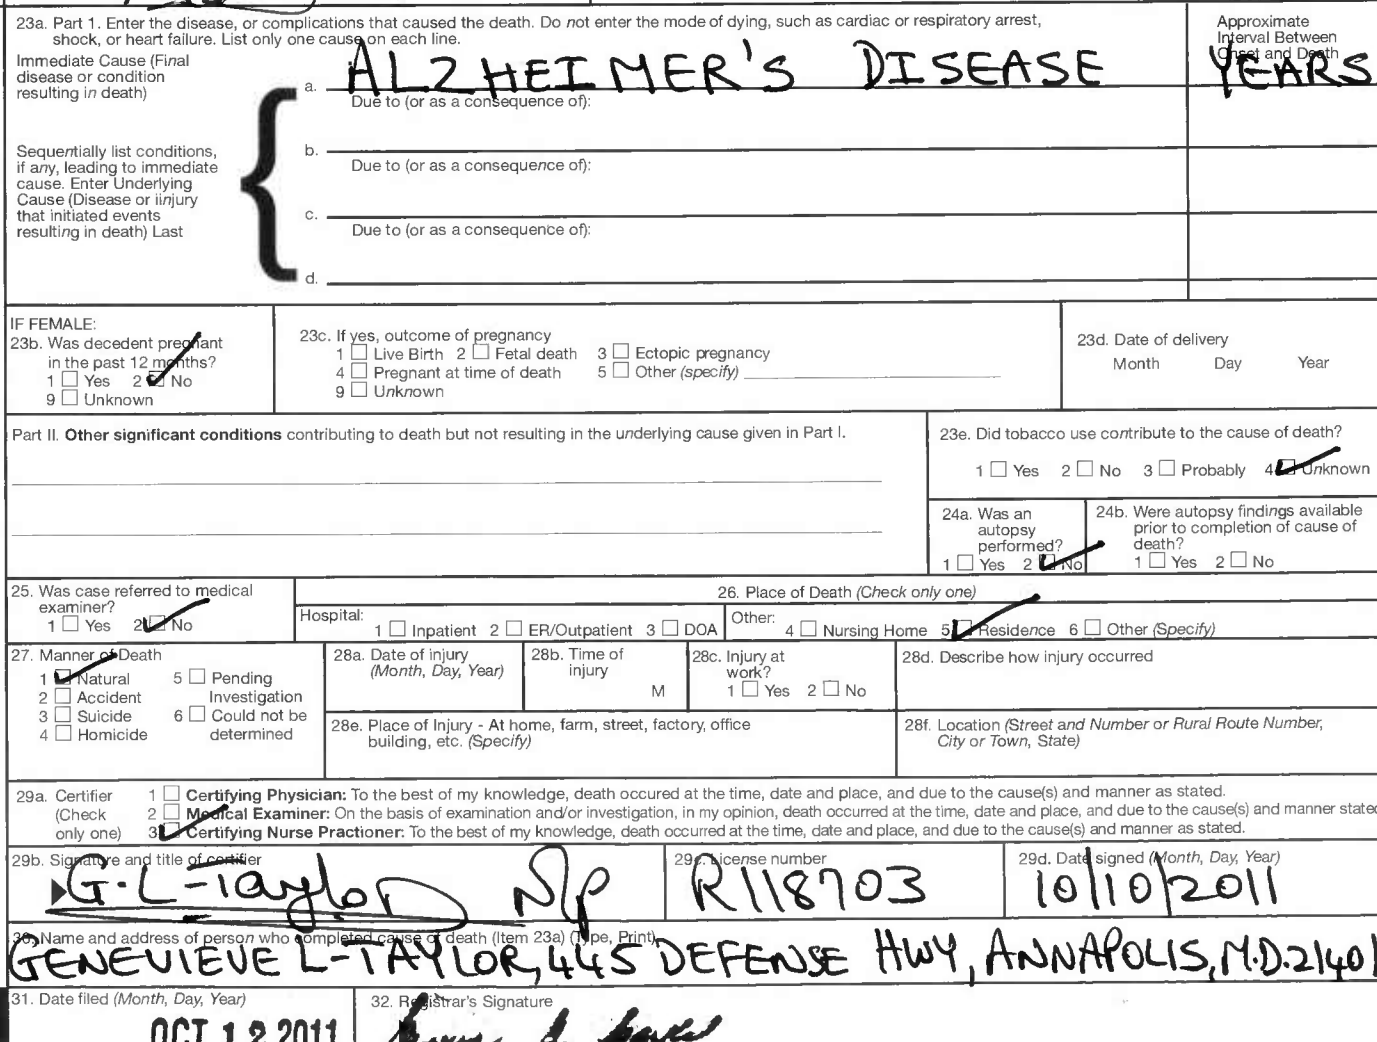 23a. Part 1. Enter the disease, or complications that caused the death. Do not enter the mode of dying, such as cardiac or respiratory arrest,
shock, or heart failure. List only one cause on each line.
Approximate
Interval Between
Onset and Death
Immediate Cause (Final
disease or condition
resulting in death)
a. ALZHEIMER'S DISEASE YEARS
Due to (or as a consequence of):
Sequentially list conditions,
if any, leading to immediate
cause. Enter Underlying
Cause (Disease or iinjury
that initiated events
resulting in death) Last
b.
Due to (or as a consequence of):
c.
Due to (or as a consequence of):
d.
IF FEMALE:
23b. Was decedent pregnant
in the past 12 months?
1 Yes 2 No
9 Unknown
23c. If yes, outcome of pregnancy
1 Live Birth 2 Fetal death 3 Ectopic pregnancy
4 Pregnant at time of death 5 Other (specify)
9 Unknown
23d. Date of delivery
Month Day Year
Part II. Other significant conditions contributing to death but not resulting in the underlying cause given in Part I.
23e. Did tobacco use contribute to the cause of death?
1 Yes 2 No 3 Probably 4 Unknown
24a. Was an
autopsy
performed?
1 Yes 2 No
24b. Were autopsy findings available
prior to completion of cause of
death?
1 Yes 2 No
25. Was case referred to medical
examiner?
1 Yes 2 No
26. Place of Death (Check only one)
Hospital: 1 Inpatient 2 ER/Outpatient 3 DOA
Other: 4 Nursing Home 5 Residence 6 Other (Specify)
27. Manner of Death
1 Natural 5 Pending
2 Accident Investigation
3 Suicide 6 Could not be
4 Homicide determined
28a. Date of injury
(Month, Day, Year)
28b. Time of
injury
M
28c. Injury at
work?
1 Yes 2 No
28d. Describe how injury occurred
28e. Place of Injury - At home, farm, street, factory, office
building, etc. (Specify)
28f. Location (Street and Number or Rural Route Number,
City or Town, State)
29a. Certifier
(Check
only one)
1 Certifying Physician: To the best of my knowledge, death occured at the time, date and place, and due to the cause(s) and manner as stated.
2 Medical Examiner: On the basis of examination and/or investigation, in my opinion, death occurred at the time, date and place, and due to the cause(s) and manner stated
3 Certifying Nurse Practioner: To the best of my knowledge, death occurred at the time, date and place, and due to the cause(s) and manner as stated.
29b. Signature and title of certifier
G. L-Taylor N/p
29c. License number
R118703
29d. Date signed (Month, Day, Year)
10/10/2011
30. Name and address of person who completed cause of death (Item 23a) (Type, Print)
GENEVIEVE L-TAYLOR, 445 DEFENSE HWY, ANNAPOLIS, M.D. 21401
31. Date filed (Month, Day, Year)
OCT 12 2011
32. Registrar's Signature